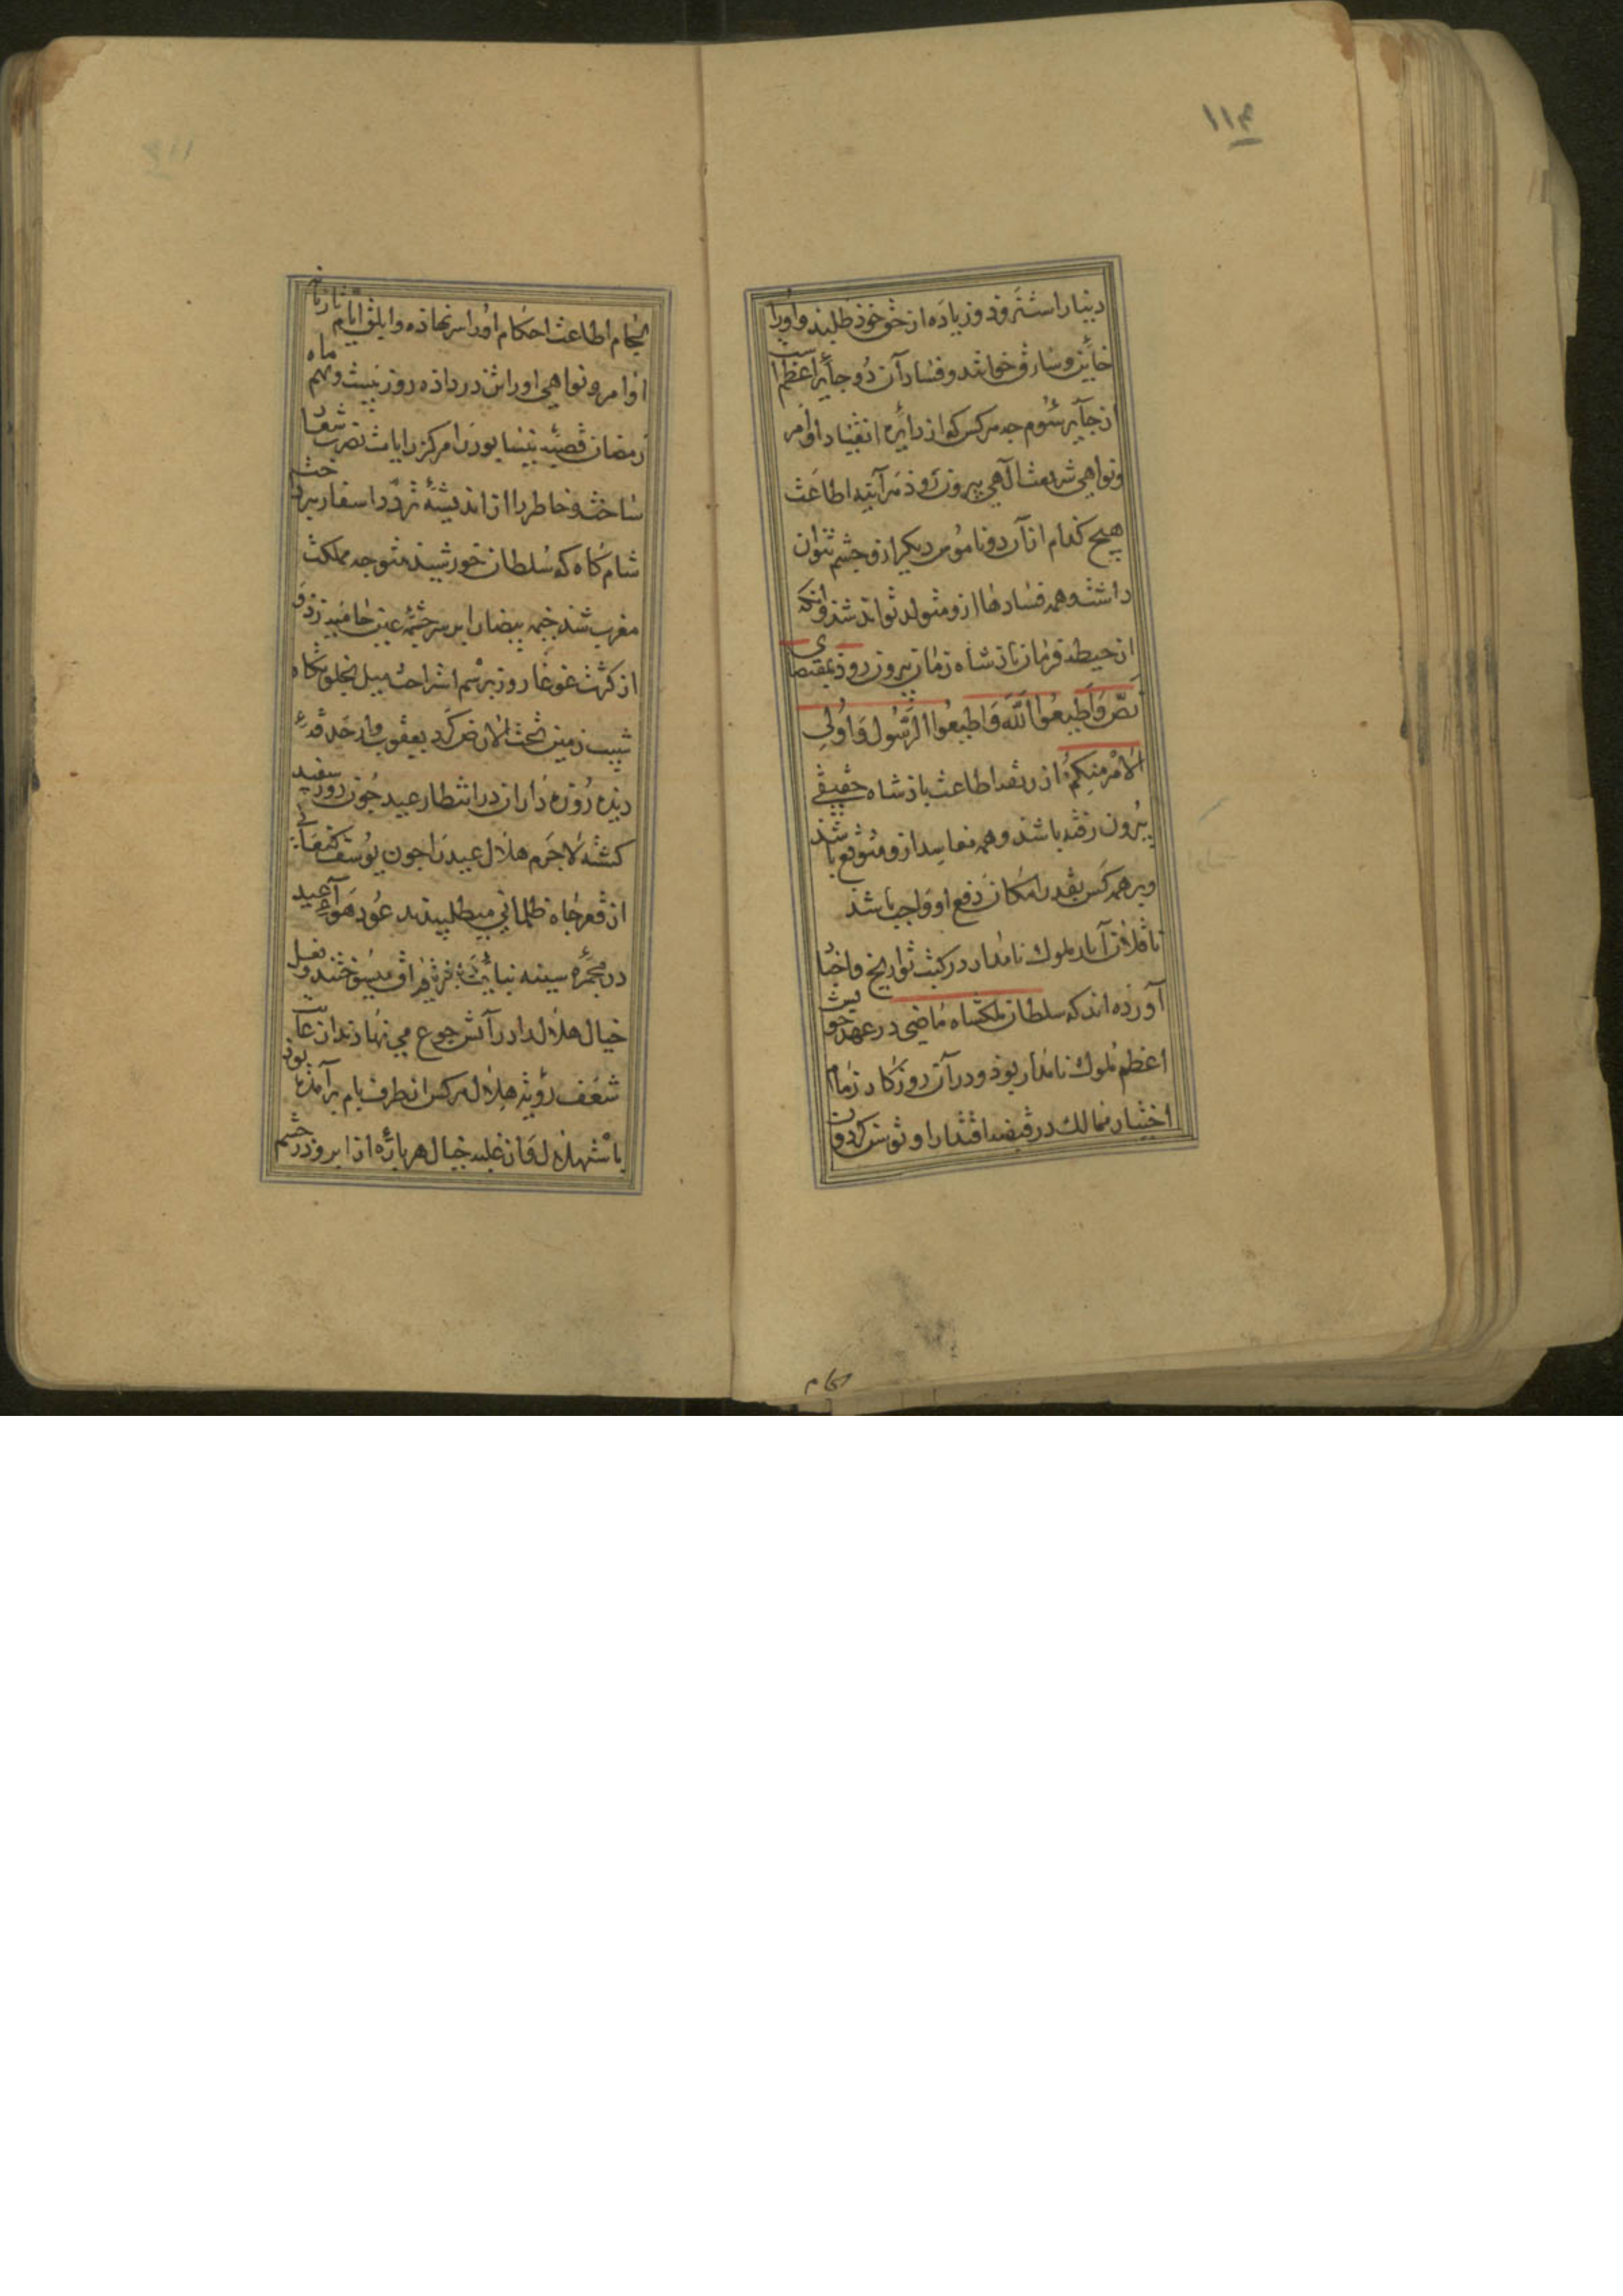 ۱۱۴
دنیا را سترد و زیاده از حق خود طلبند و او را
خاین و سارق خوانند و فساد آن دو جایر اعظم است
از جایر سوم جه هر کس کو از دایره انقیاد اوامر
و نواهی شریعت الهی بیرون رود هر آینه اطاعت
هیچ کدام از آن دو ناموس دیکر ازو چشم نتوان
داشت و همه فسادها ازو متولد تواند شد و آنکه
از حیطه فرمان باذشاه زمان بیرون رود بمقتضای
نَصّ وَاَطِیعُوا اللّٰهَ وَاَطِیعُوا الرَّسُولَ وَاُولِی
الاَمْرِ مِنکُمْ از ربقه اطاعت باذشاه حقیقی
بیرون رفته باشد و همه مفاسد ازو متوقع باشد
و بر همه کس بقدر امکان دفع او واجب باشد
ناقلان آثار ملوک نامدار در کتب تواریخ و اخبار
آورده اند که سلطان ملکشاه ماضی در عهد خویش
اعظم ملوک نامدار بوذ و در آن روزکار زمام
اختیار ممالک در قبضه اقتدار او توسن کردون
لجام
لجام اطاعت احکام او را سر نهاده و ابلق ایام تازیانه
اوامر و نواهی او را تن در داده روز بیست و نهم ماه
رمضان قصبه نیسابور را مرکز رایات نصرت شعار
ساخت و خاطر را از اندیشه تردد اسفار بپرداخت
شام کاه که سلطان خورشید متوجه مملکت
مغرب شد خیمه بیضا را بر سر چشمه عین حامیه زد و
از کثرت غوغاء روز برسم استراحت میل بخلوتکاه
شیب زمین تحت الارض کرد یعقوب وار حدقه
دیده روزه داران در انتظار عید جون روز سفید
کشته لاجرم هلال عید را جون یوسف کنعانی
از قعر چاه ظلمانی میطلبیدند عود هواء عید
در مجمره سینه بنایره فراق میسوختند و نعل
خیال هلال را در آتش جوع می نهادند از غایت
شعف رؤیت هلال هر کس از طرف بام برآمده بود
باستهلال و از غلبه خیال هر باره از ابرو در چشم